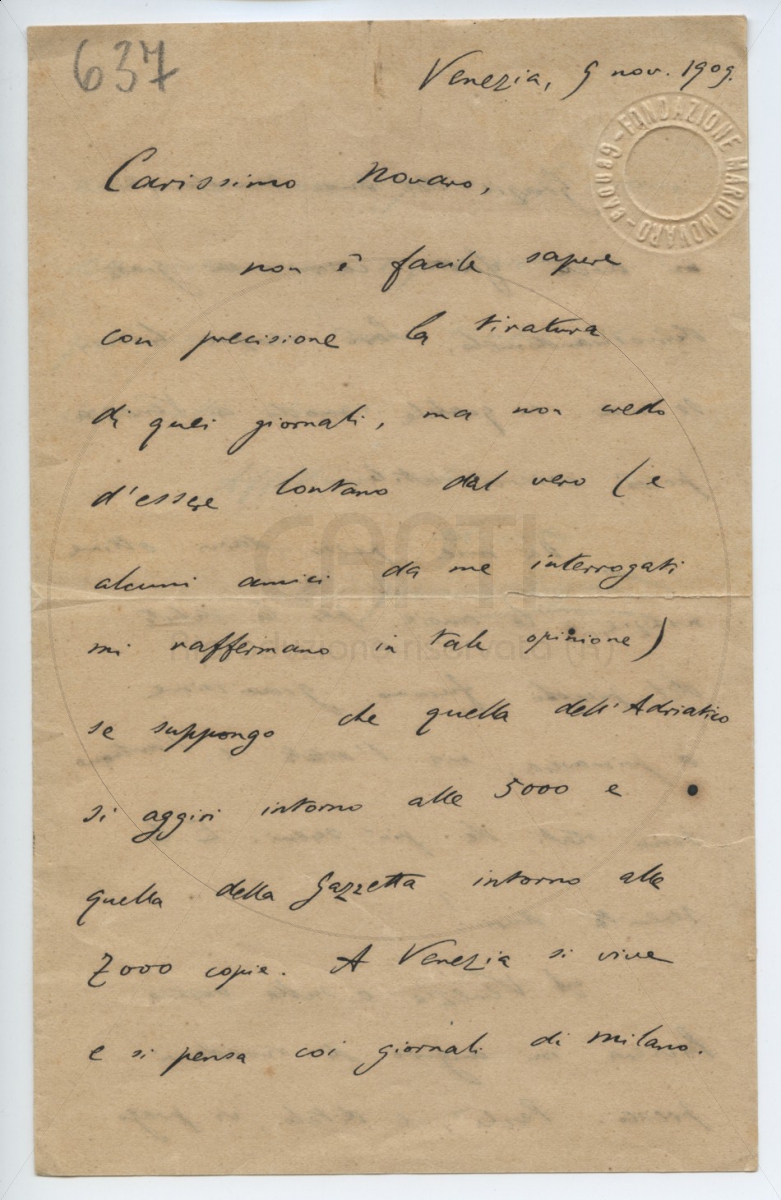 637
Venezia, 9 nov. 1909.
FONDAZIONE MARIO NOVARO - GENOVA -
Carissimo Novaro,
non è facile sapere
con precisione la tiratura
di quei giornali, ma non credo
d'essere lontano dal vero (e
alcuni amici da me interrogati
mi raffermano in tale opinione)
se suppongo che quella dell'Adriatico
si aggiri intorno alle 5000 e
quella della Gazzetta intorno alle
7000 copie. A Venezia si vive
e si pensa coi giornali di Milano.
CAPTI